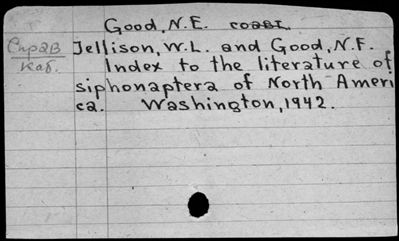 Good, N.E. coabt.
Спр2В
Каб.
Jellison, W.L. and Good, N.F.
Index to the literature of
siphonaptera of North Ameri
ca. Washington, 1942.